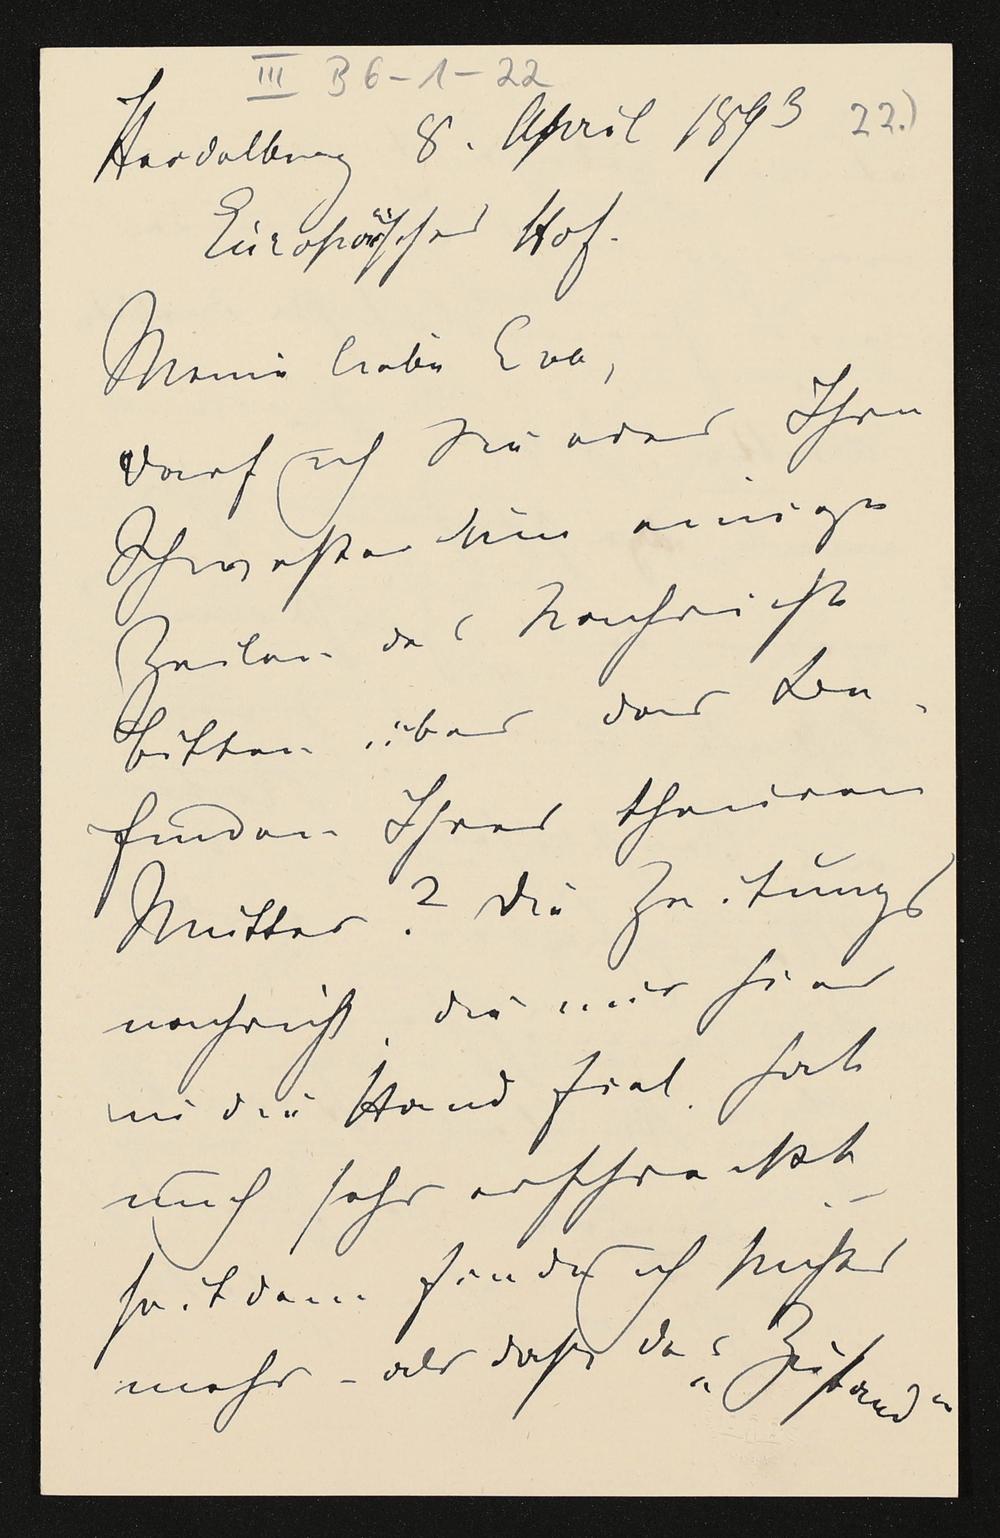 III B 6-1-22
Heidelberg 8. April 1893 22.)
Europäischer Hof.
Meine liebe Eva,
darf ich Sie oder Ihre
Schwestern um einige
Zeilen der Nachricht
bitten über das Be-
finden Ihrer theuren
Mutter? Die Zeitungs
nachricht, die mir hier
in die Hand fiel, hat
mich sehr erschreckt –
seitdem finde ich nichts
mehr – als daß der „Zustand"